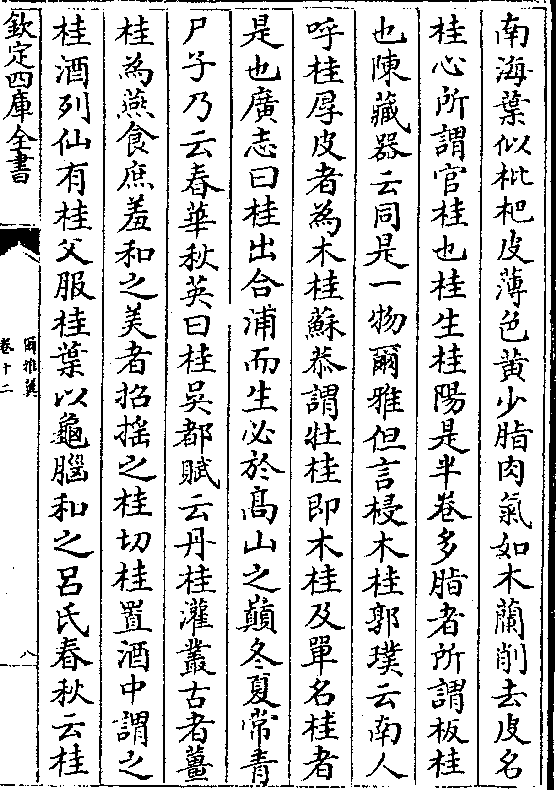 南海葉似枇杷皮薄色黄少脂肉氣如木蘭削去皮名
桂心所謂官桂也桂生桂陽是半卷多脂者所謂板桂
也陳藏器云同是一物爾雅但言梫木桂郭璞云南人
呼桂厚皮者為木桂蘇恭謂牡桂即木桂及單名桂者
是也廣志曰桂出合浦而生必於髙山之巔冬夏常青
尸子乃云春華秋英曰桂吳都賦云丹桂灌叢古者薑
桂為燕食庶羞和之美者招摇之桂切桂置酒中謂之
桂酒列仙有桂父服桂葉以龜腦和之呂氏春秋云桂
欽定四庫全書
爾雅翼
卷十二
八